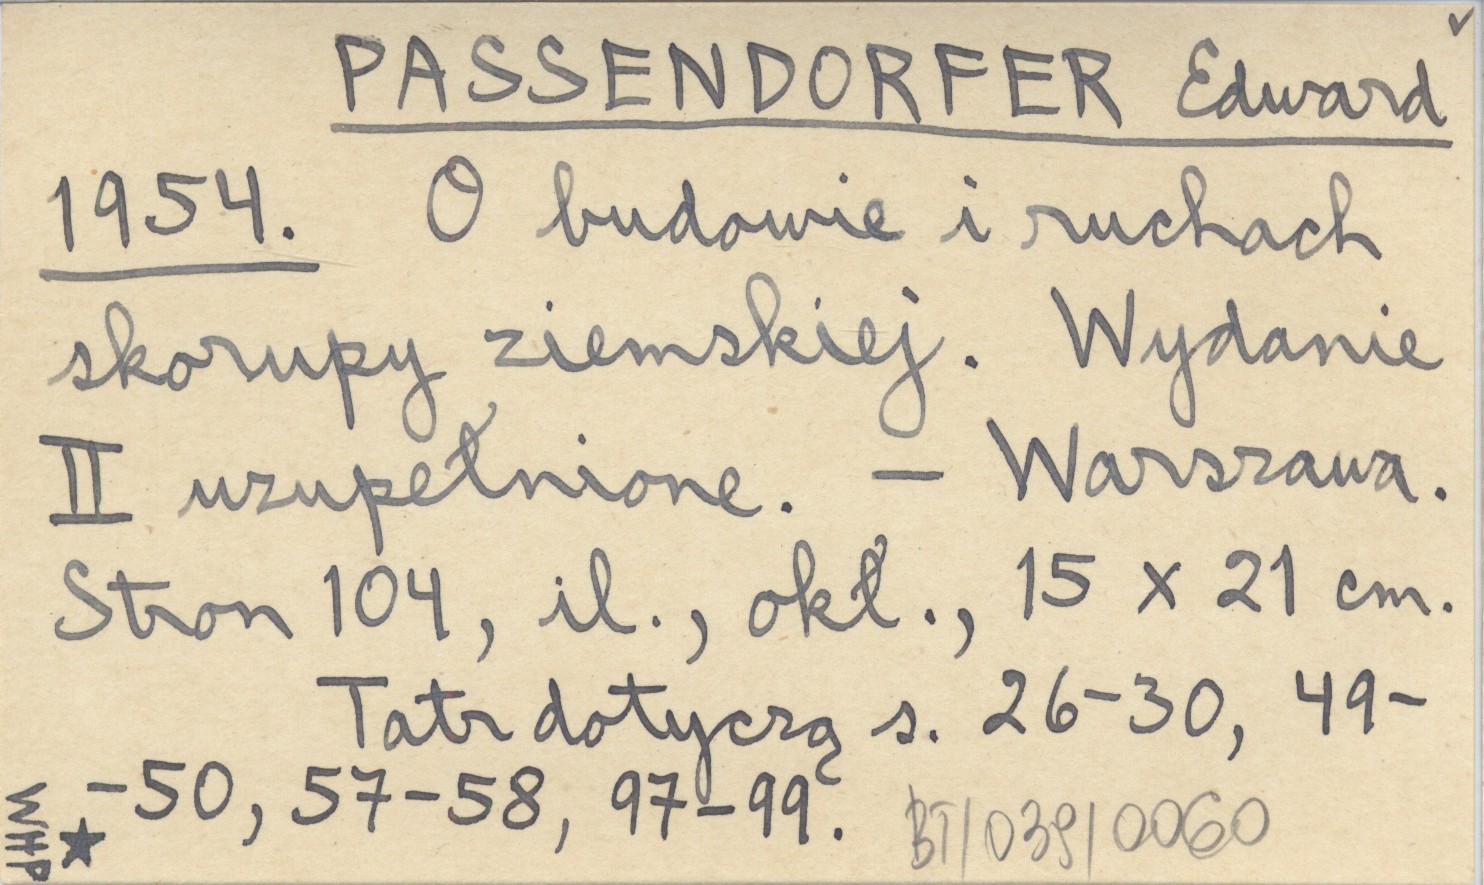 PASSENDORFER Edward
1954. O budowie i ruchach
skorupy ziemskiej. Wydanie
II uzupełnione. — Warszawa.
Stron 104, il., okł., 15 x 21 cm.
Tatr dotyczą s. 26-30, 49-
-50, 57-58, 97-99.
BT/039/0060
WHP